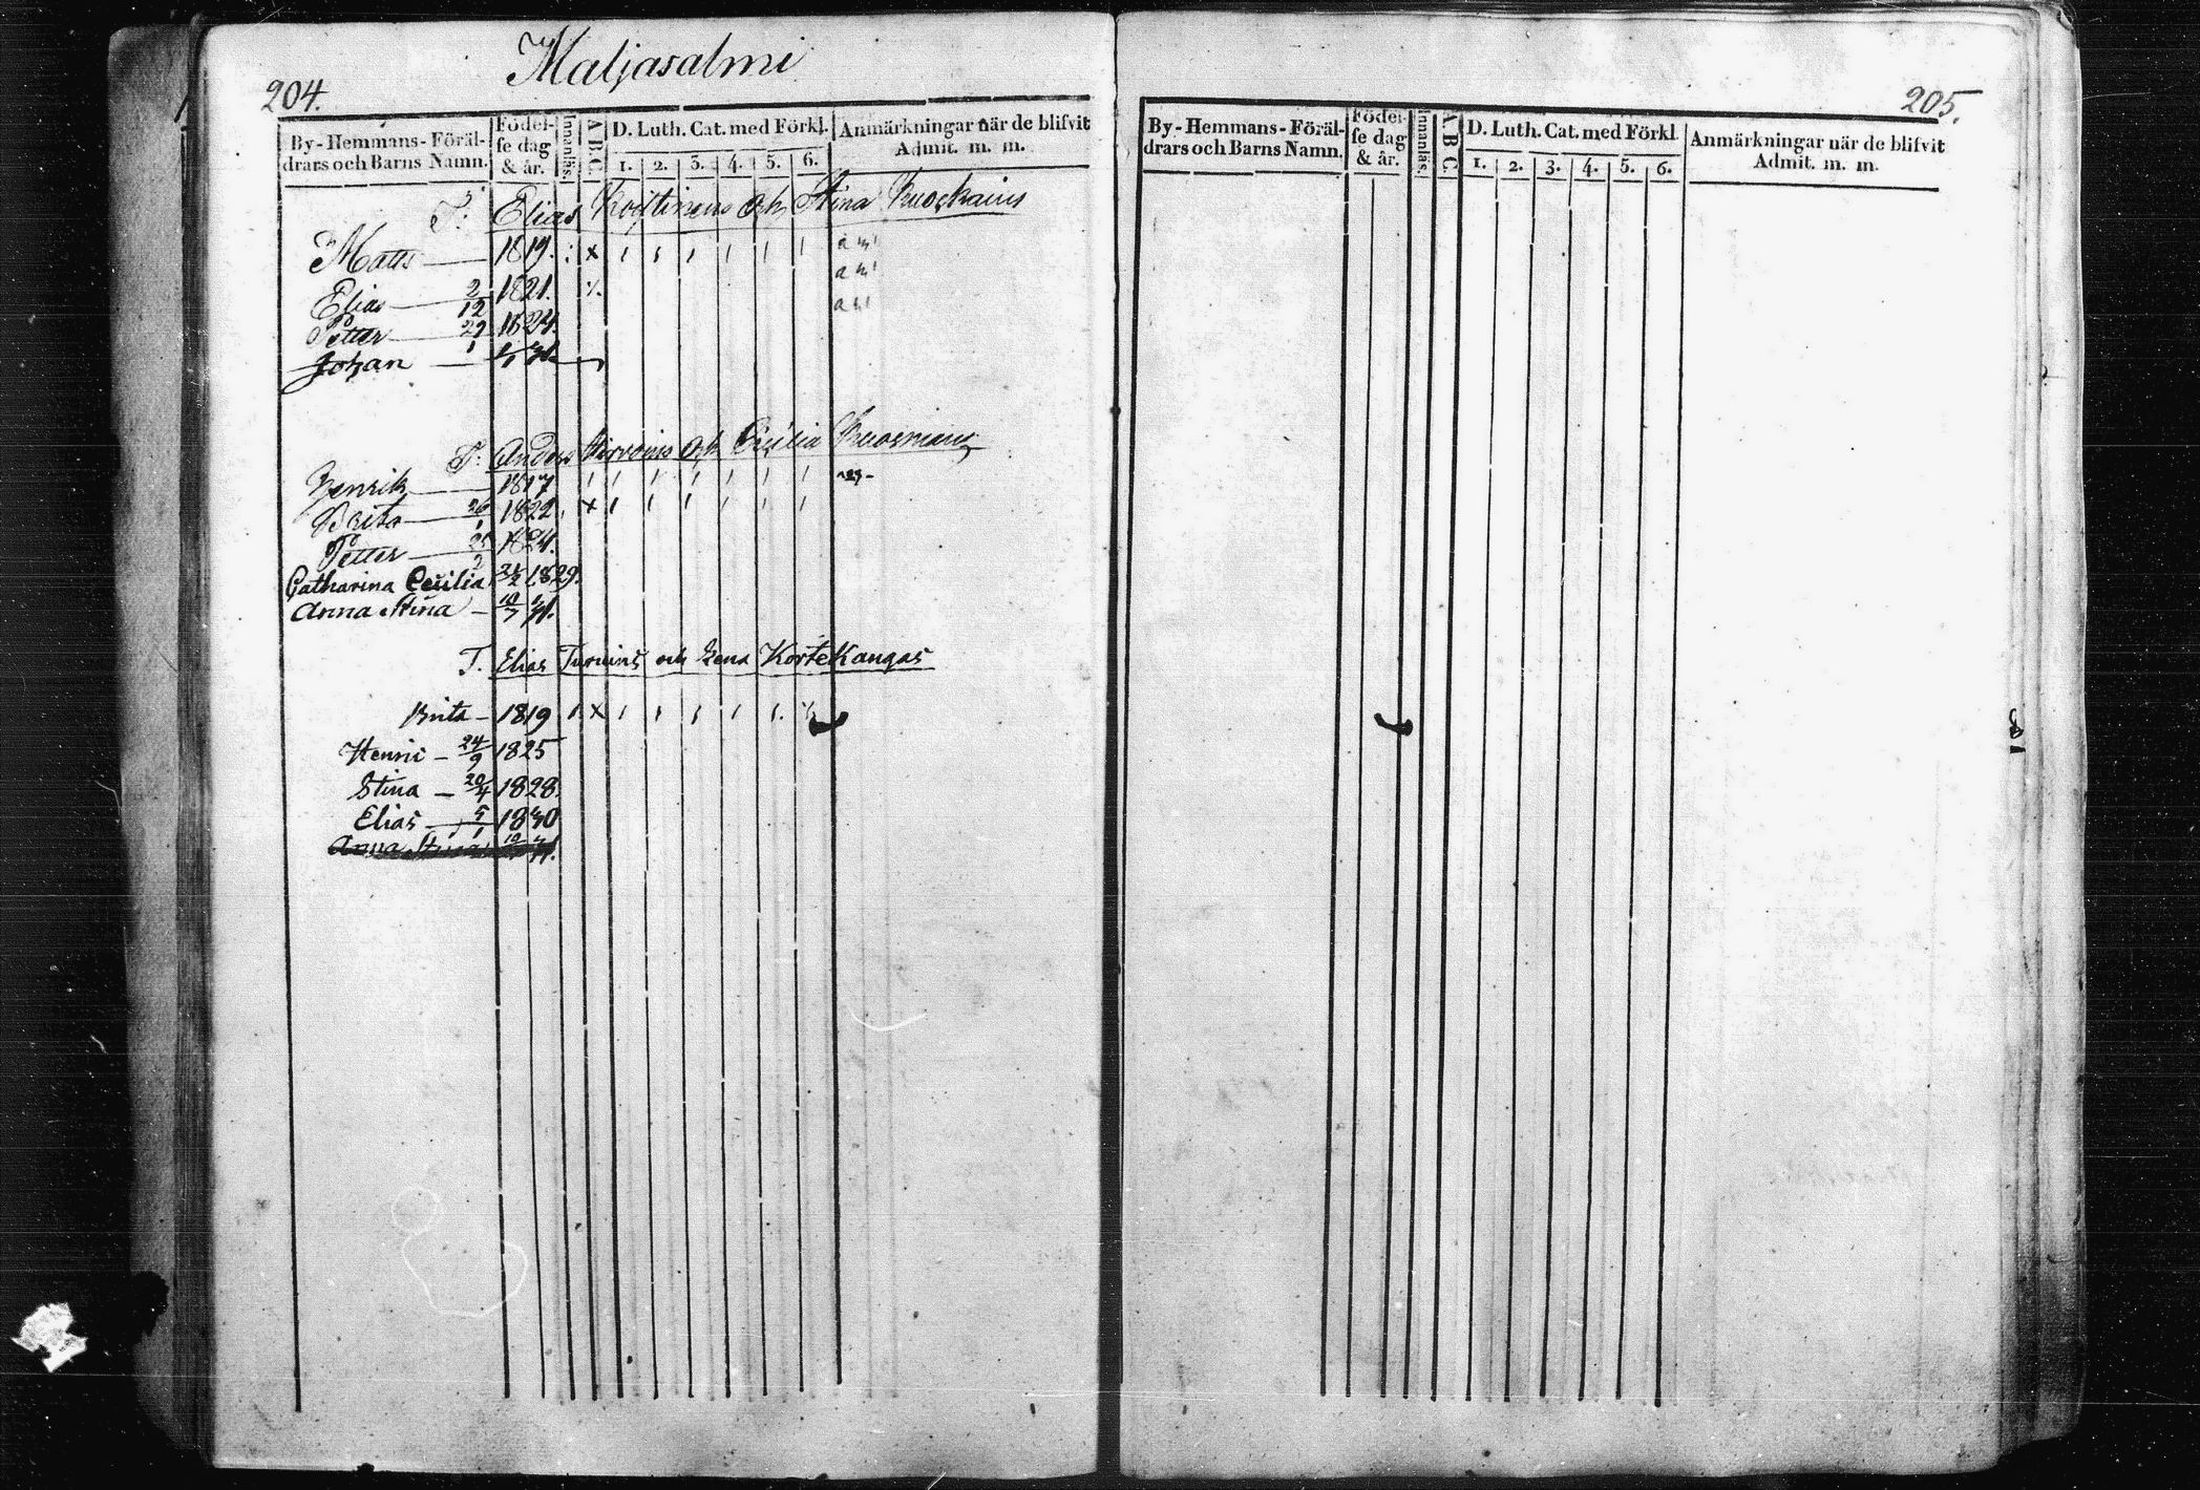 Maljasalmi
204.
By-Hemmans-Föräl-
drars och Barns Namn.
Födel-
se dag
& år.
Innanläs.
A B C.
D. Luth. Cat. med Förkl.
1. 2. 3. 4. 5. 6.
Anmärkningar när de blifvit
Admit. m. m.
T. Elias och Stina
Matts 1819. x 1 1 1 1 1 1
Elias 2/12 1821.
Petter 29/1 1824.
Johan
T. Anders och Cecilia
Henrik 1817 1 1 1 1 1 1 1
Brita 1822 x 1 1 1 1 1 1
Petter 1824.
Catharina Cecilia 1829.
Anna Stina 31.
T. Elias och Lena Kortekangas
Brita - 1819 1 x 1 1 1 1 1.
Henric - 24/9 1825
Stina - 20/4 1828.
Elias 5/1 1830
Anna Stina 31.
205.
By-Hemmans-Föräl-
drars och Barns Namn.
Födel-
se dag
& år.
Innanläs.
A B C.
D. Luth. Cat. med Förkl
1. 2. 3. 4. 5. 6.
Anmärkningar när de blifvit
Admit. m. m.